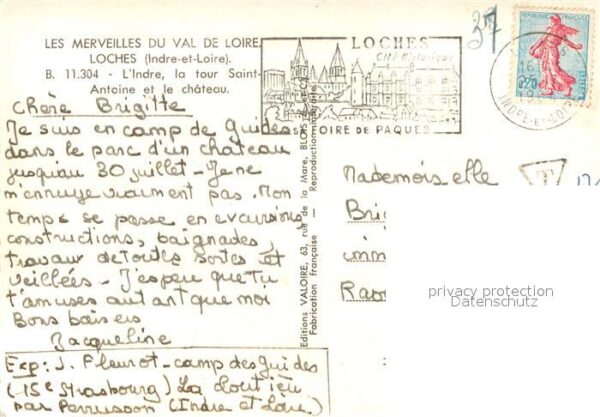 37
LES MERVEILLES DU VAL DE LOIRE
LOCHES (Indre-et-Loire).
B. 11.304 - L'Indre, la tour Saint-
Antoine et le château.
LOCHES
Cité Historique
FOIRE DE PAQUES
16
0,20
INDRE-et-LOIRE
Chère Brigitte
Je suis en camp de guides
dans le parc d'un chateau
jusqu'au 30 juillet - Je ne
m'ennuye vraiment pas. Mon
temps se passe en excursions,
constructions, baignades,
travaux de toutes sortes et
veillées - J'espere que tu
t'amuses autant que moi
Bons baisers
Jacqueline
Exp: J. Fleurot - camp des guides
(15e Strasbourg) La
par Perrusson (Indre et Loire)
Editions VALOIRE, 63, rue de la Mare, BLOIS
Fabrication française - Reproduction interdite
Mademoiselle
Bri
imm
Rao
T
privacy protection
Datenschutz